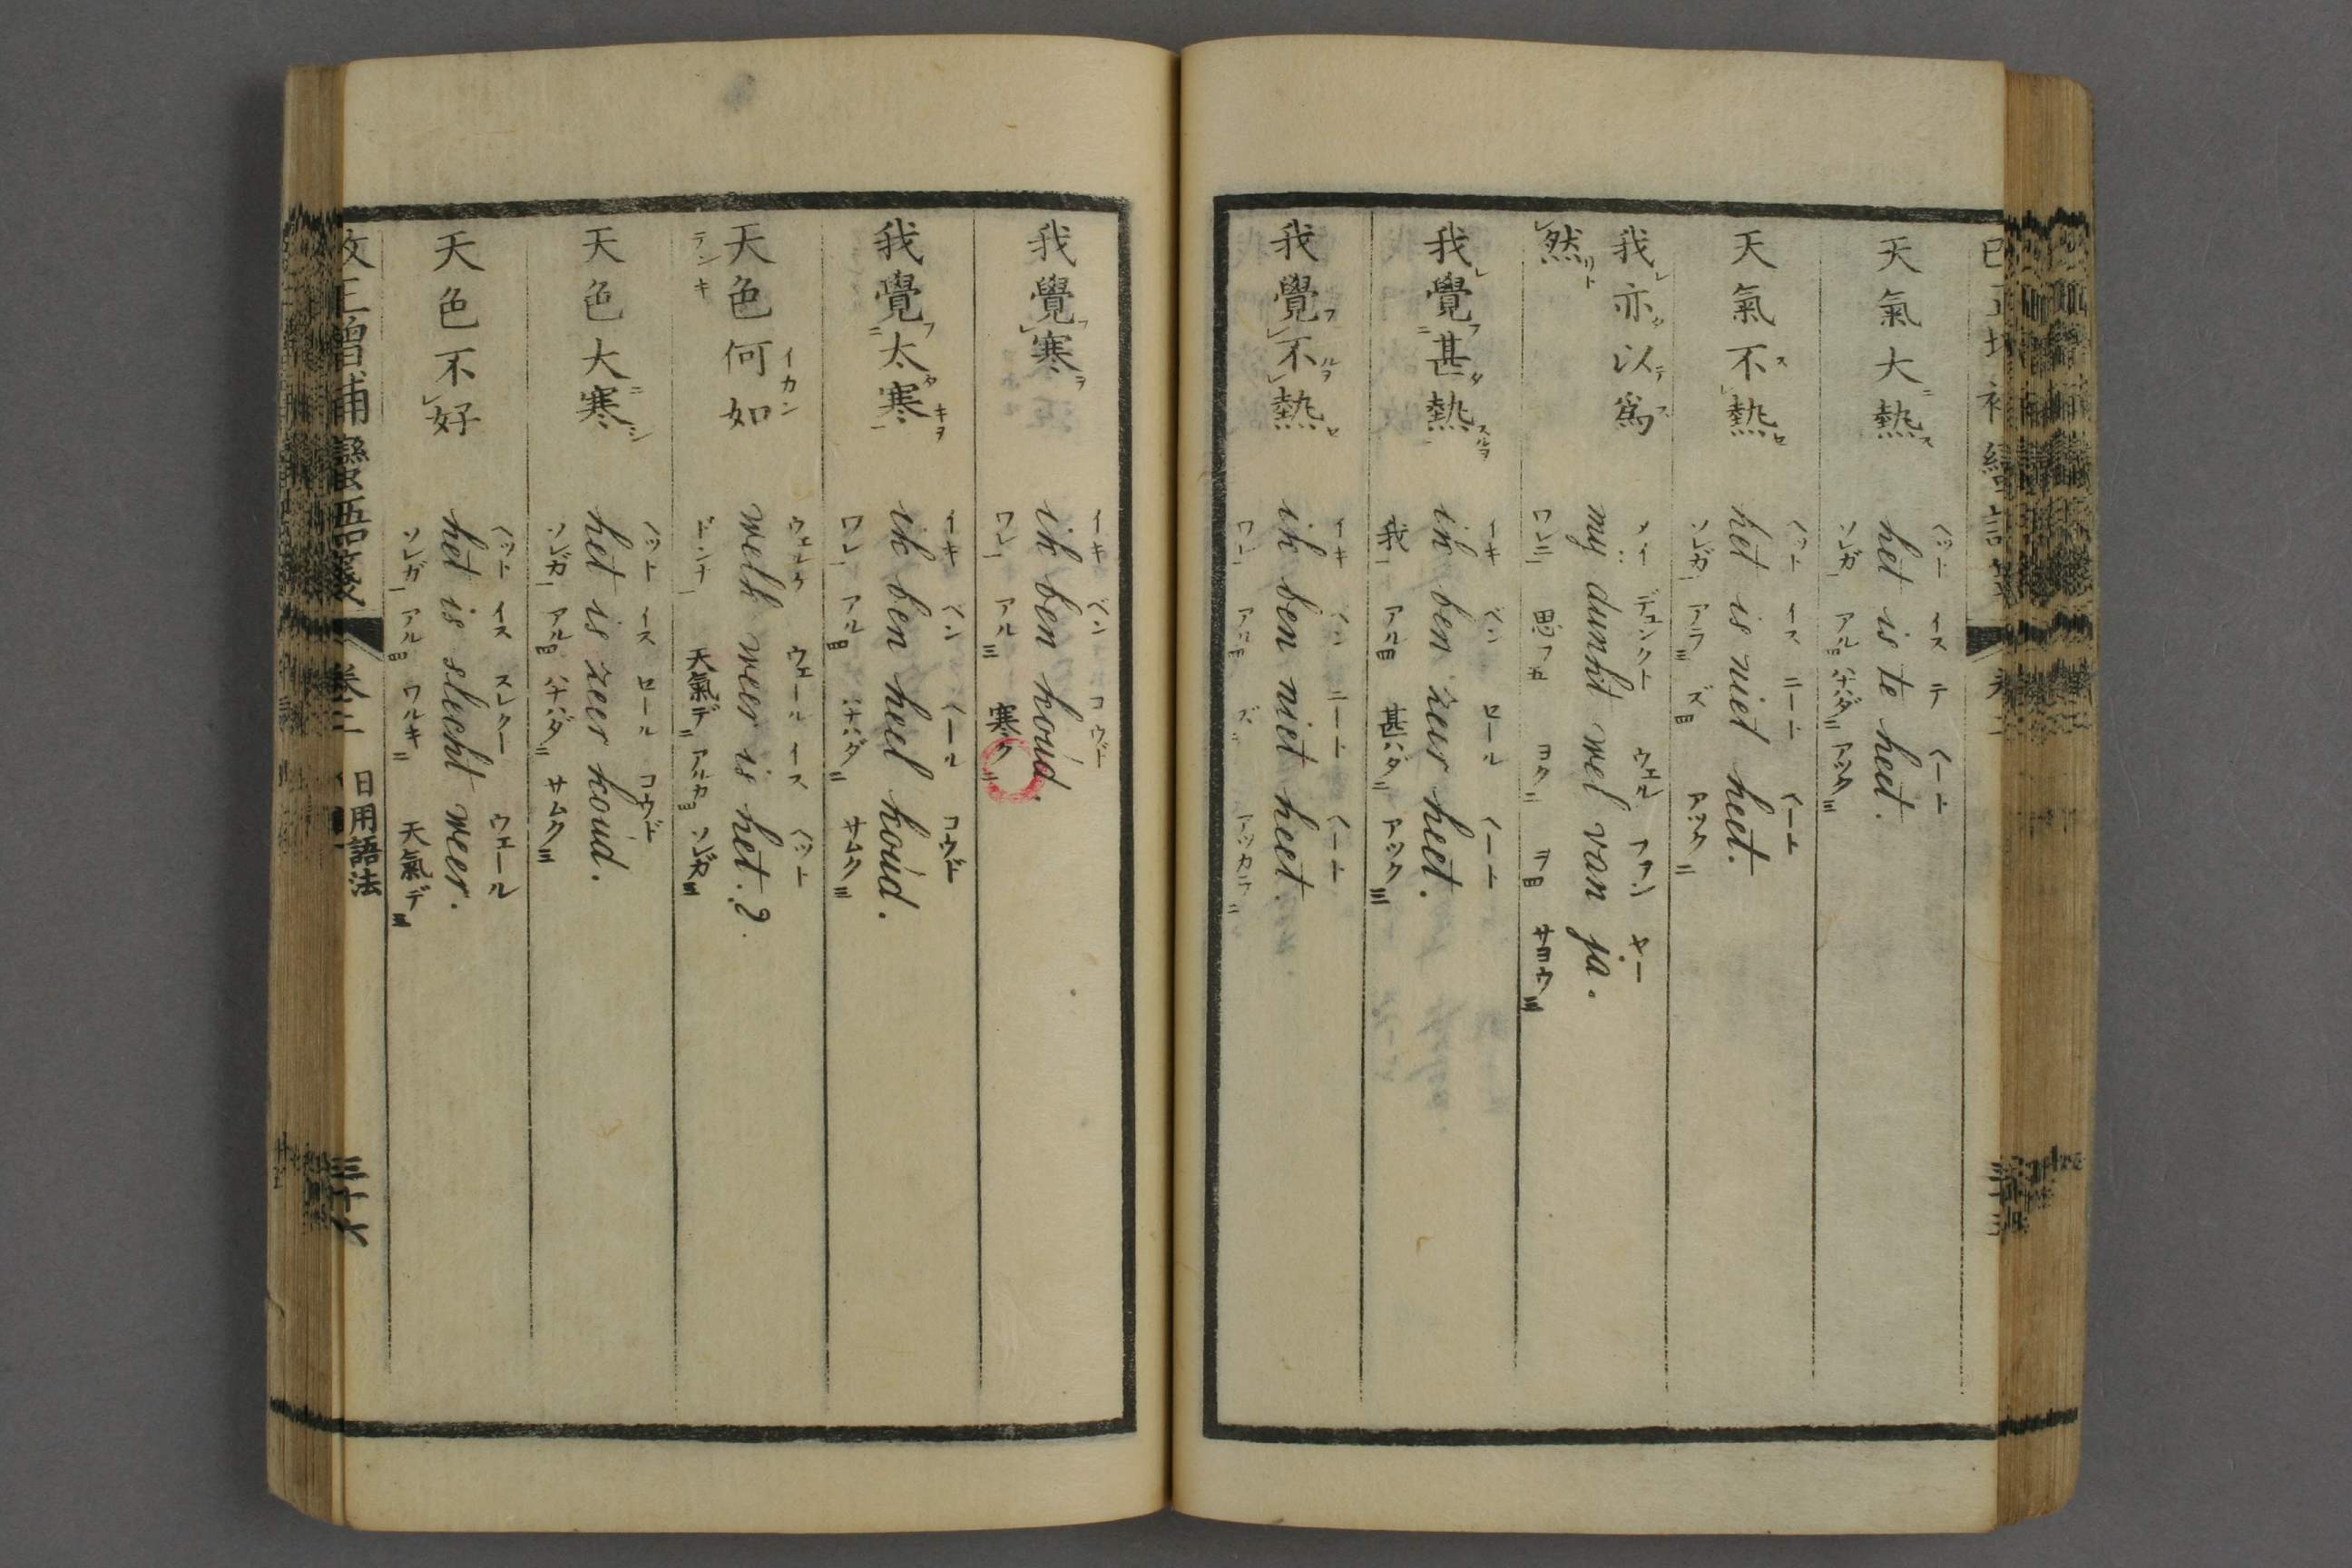 天氣大熱ニス
ヘット イス テ ヘート
het is te heet.
ソレガ一 アル四 ハナハダ二 アツク三
天氣不熱スレセ
ヘット イス ニート ヘート
het is niet heet.
ソレガ一 アラ三 ズ四 アツク二
我亦以爲
然
メイ デュンクト ウェル ファン ヤー
my dunkt wel van ja.
ワレニ一 思フ五 ヨク二 ヲ四 サヨウ三
我覺甚熱
イキ ベン セール ヘート
ik ben zeer heet.
我一 アル四 甚ハダ二 アツク三
我覺不熱
イキ ベン ニート ヘート
ik ben niet heet.
ワレ一 アル四 ズ三 アツカラ二
我覺寒
イキ ベン コウド
ik ben koud.
ワレ一 アル三 寒ク二
我覺太寒
イキ ベン ヘール コウド
ik ben heel koud.
ワレ一 アル四 ハナハダ二 サムク三
天色何如
イカン
テンキ
ウェルク ウェール イス ヘット
welk weer is het.?
ドンナ一 天氣デ二 アルカ四 ソレガ三
天色大寒ニシ
ヘット イス セール コウド
het is zeer koud.
ソレガ一 アル四 ハナハダ二 サムク三
天色不好
ヘット イス スレクー ウェール
het is slecht weer.
ソレガ一 アル四 ワルキ二 天氣デ三
改正增補蠻語箋 卷二 日用語法 三十七